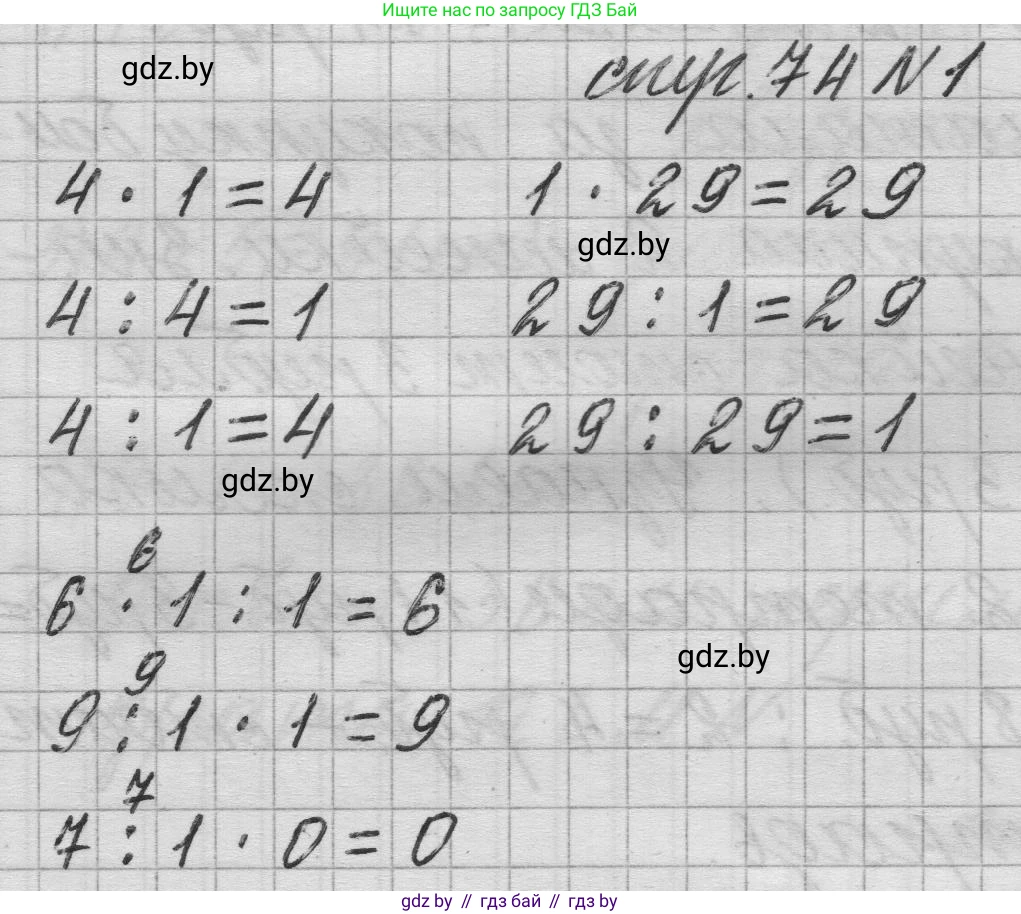 Ищите нас по запросу ГДЗ Бай
gdz.by
стр. 74 N 1
4 · 1 = 4
1 · 29 = 29
gdz.by
4 : 4 = 1
29 : 1 = 29
4 : 1 = 4
29 : 29 = 1
gdz.by
6
6 · 1 : 1 = 6
gdz.by
9
9 : 1 · 1 = 9
7
7 : 1 · 0 = 0
gdz.by // гдз бай // gdz by